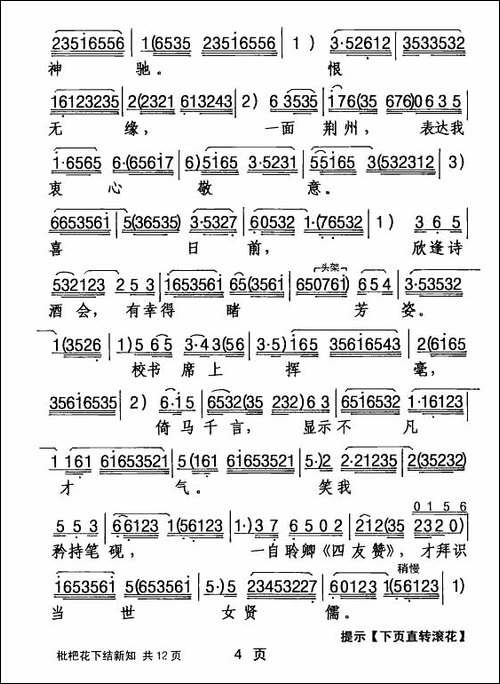 235i6556 1(6535 235i6556 1) 3·52612 3533532
神 驰。 恨
16123235 2(2321 613243 2) 6 3535 i76(35 676)0635
无 缘， 一面 荆州， 表达我
i·6565 6·(65617 6)5i65 3·5231 55i65 3(532312 3)
衷 心 敬 意。
6653561 5(36535) 3·5327 60532 1·(76532 1) 3 6 5
喜 日 前， 欣逢诗
532123 2 5 3 1653561 65(3561 650761) 6 5 4 3·53532
头架
酒会， 有幸得 睹 芳 姿。
1(3526 1)5 6 5 3·43(56 3·5)i65 35616543 2(6165
校书 席 上 挥 毫，
35616535 2) 6·i5 6532(35 232)6 3 65i6532 1·16123
倚 马 千 言， 显示 不 凡
1 161 61653521 5(161 61653521 5·)2 2·21235 2(35232)
才 气。 笑我
5 5 3 66123 1(56123 1·)3 7 6 5 0 2 212(35 2320)
0 1 5 6
矜持笔 砚， 一自聆卿《四友赞》，才拜识
1653561 5(653561 5·)5 23453227 60123 1(56123 1)
稍慢
当 世 女 贤 儒。
提示【下页直转滚花】
枇杷花下结新知 共12页 4 页